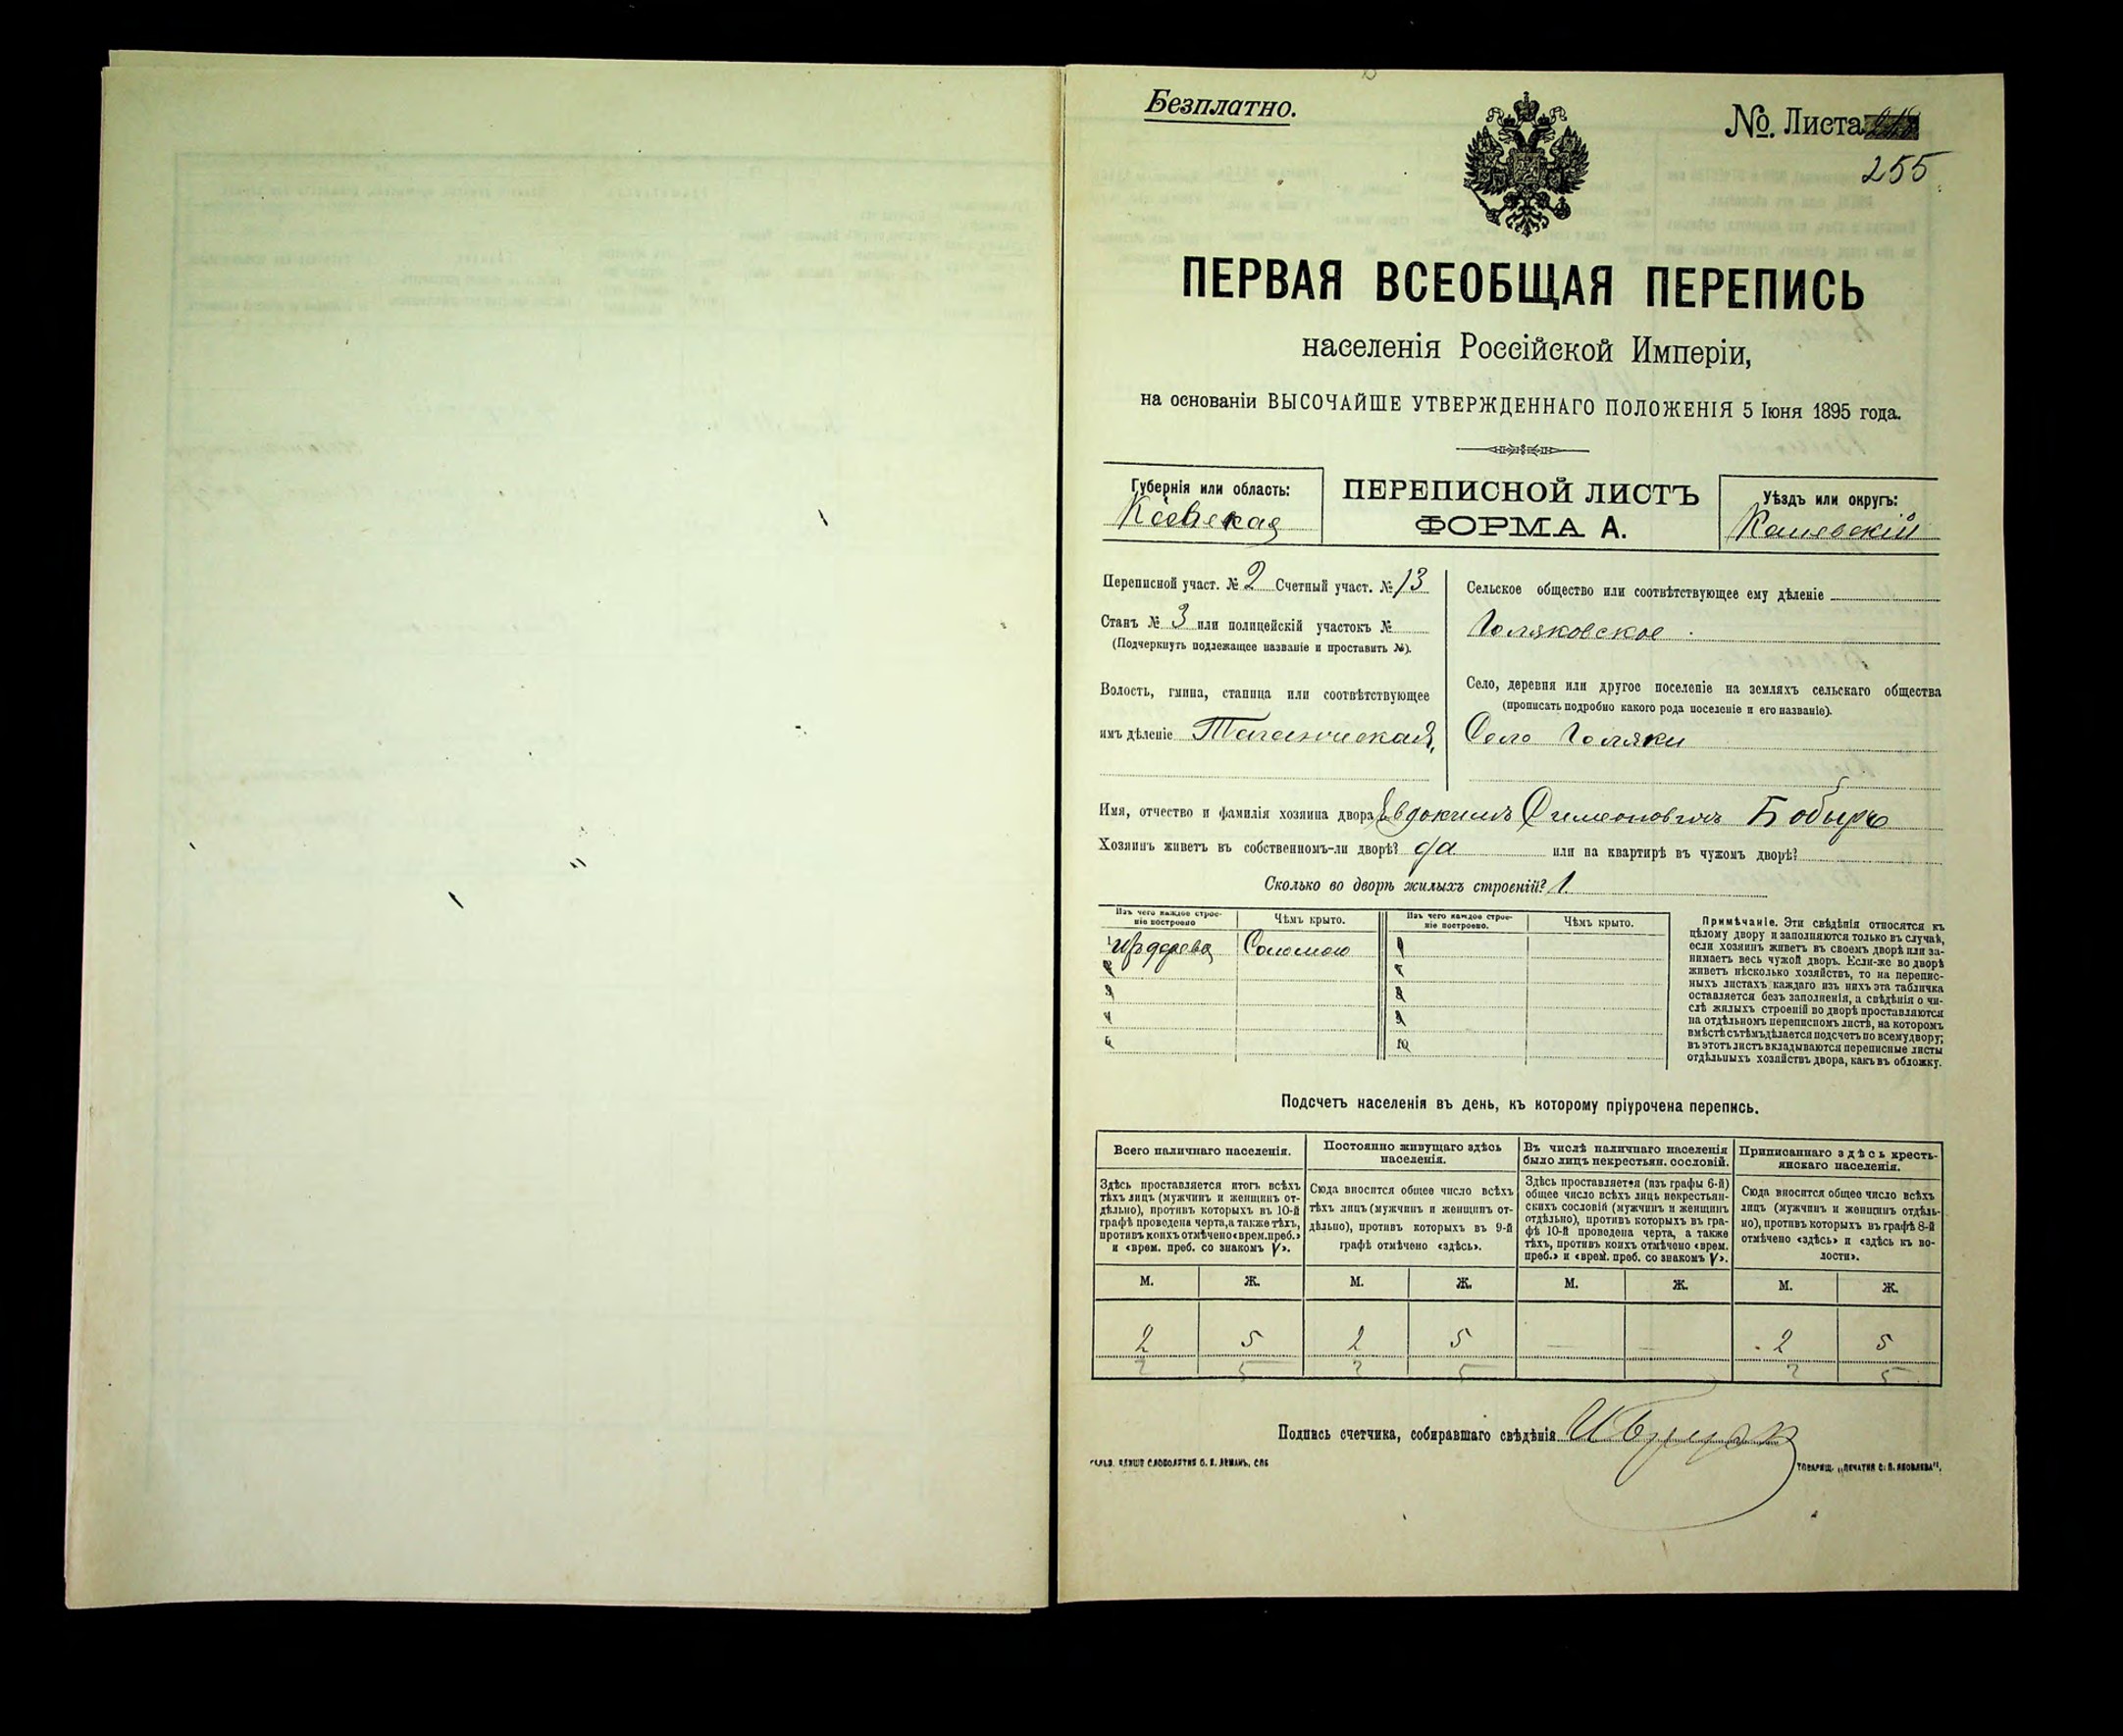 Безплатно.
№. Листа
255
ПЕРВАЯ ВСЕОБЩАЯ ПЕРЕПИСЬ
населенія Россійской Имперіи,
на основаніи ВЫСОЧАЙШЕ УТВЕРЖДЕННАГО ПОЛОЖЕНІЯ 5 Іюня 1895 года.
Губернія или область:
Кіевская
ПЕРЕПИСНОЙ ЛИСТЪ
ФОРМА А.
Уѣздъ или округъ:
Каневскій
Переписной участ. № 2 Счетный участ. № 13
Станъ № 3 или полицейскій участокъ №
(Подчеркнуть подлежащее названіе и проставить №).
Волость, гмина, станица или соотвѣтствующее
имъ дѣленіе Таганчская,
Сельское общество или соотвѣтствующее ему дѣленіе
Голяковское
Село, деревня или другое поселеніе на земляхъ сельскаго общества
(прописать подробно какого рода поселеніе и его названіе).
Село Голяки
Имя, отчество и фамилія хозяина двора Евдокимъ Симеоновичъ Бобырь
Хозяинъ живетъ въ собственномъ-ли дворѣ? да или на квартирѣ въ чужомъ дворѣ?
Сколько во дворѣ жилыхъ строеній? 1.
Изъ чего каждое строе-
ніе построено
Чѣмъ крыто.
Изъ чего каждое строе-
ніе построено.
Чѣмъ крыто.
1 Изъ дерева Соломою
2 7
3 8
4 9
5 10
Примѣчаніе. Эти свѣдѣнія относятся къ
цѣлому двору и заполняются только въ случаѣ,
если хозяинъ живетъ въ своемъ дворѣ или за-
нимаетъ весь чужой дворъ. Если-же во дворѣ
живетъ нѣсколько хозяйствъ, то на перепис-
ныхъ листахъ каждаго изъ нихъ эта табличка
оставляется безъ заполненія, а свѣдѣнія о чи-
слѣ жилыхъ строеній во дворѣ проставляются
на отдѣльномъ переписномъ листѣ, на которомъ
вмѣстѣ съ тѣмъ дѣлается подсчетъ по всему двору;
въ этотъ листъ вкладываются переписные листы
отдѣльныхъ хозяйствъ двора, какъ въ обложку.
Подсчетъ населенія въ день, къ которому пріурочена перепись.
Всего наличнаго населенія.
Здѣсь проставляется итогъ всѣхъ
тѣхъ лицъ (мужчинъ и женщинъ от-
дѣльно), противъ которыхъ въ 10-й
графѣ проведена черта, а также тѣхъ,
противъ коихъ отмѣчено «врем. преб.»
и «врем. преб. со знакомъ V».
Постоянно живущаго здѣсь
населенія.
Сюда вносится общее число всѣхъ
тѣхъ лицъ (мужчинъ и женщинъ от-
дѣльно), противъ которыхъ въ 9-й
графѣ отмѣчено «здѣсь».
Въ числѣ наличнаго населенія
было лицъ некрестьян. сословій.
Здѣсь проставляется (изъ графы 6-й)
общее число всѣхъ лицъ некрестьян-
скихъ сословій (мужчинъ и женщинъ
отдѣльно), противъ которыхъ въ гра-
фѣ 10-й проведена черта, а также
тѣхъ, противъ коихъ отмѣчено «врем.
преб.» и «врем. преб. со знакомъ V».
Приписаннаго здѣсь кресть-
янскаго населенія.
Сюда вносится общее число всѣхъ
лицъ (мужчинъ и женщинъ отдѣль-
но), противъ которыхъ въ графѣ 8-й
отмѣчено «здѣсь» и «здѣсь къ во-
лости».
М. Ж. М. Ж. М. Ж. М. Ж.
2 5 2 5 — — 2 5
2 5 2 5 2 5
Подпись счетчика, собиравшаго свѣдѣнія
ТОВАРИЩ. „ПЕЧАТНЯ С. П. ЯКОВЛЕВА“.